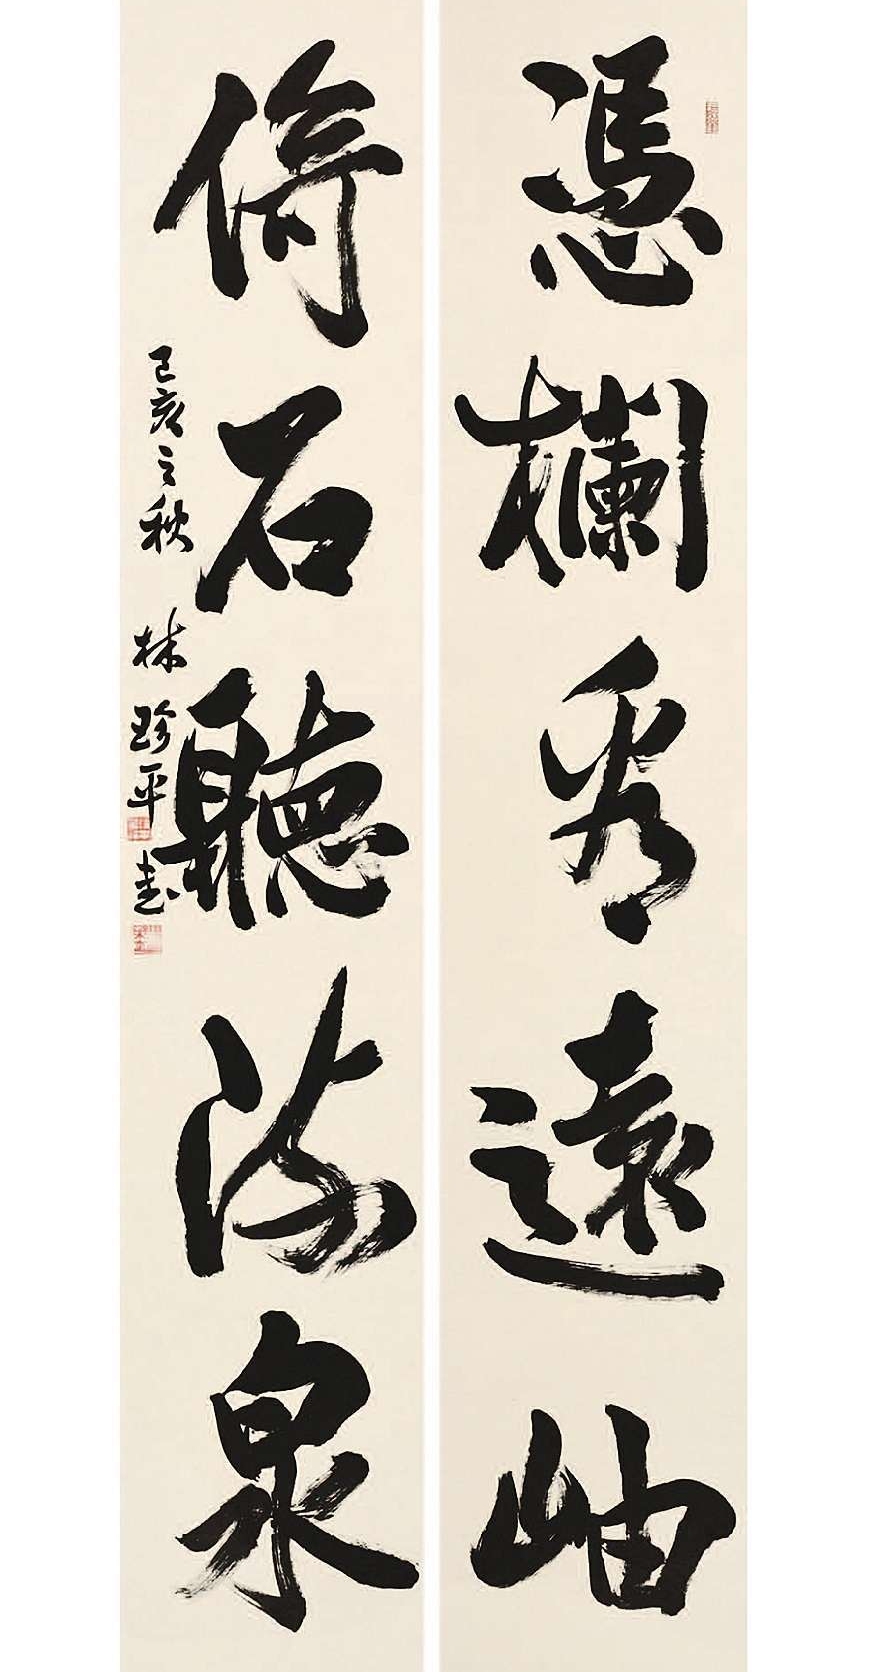 憑欄秀遠岫
倚石聽流泉
己亥之秋 林珍平書